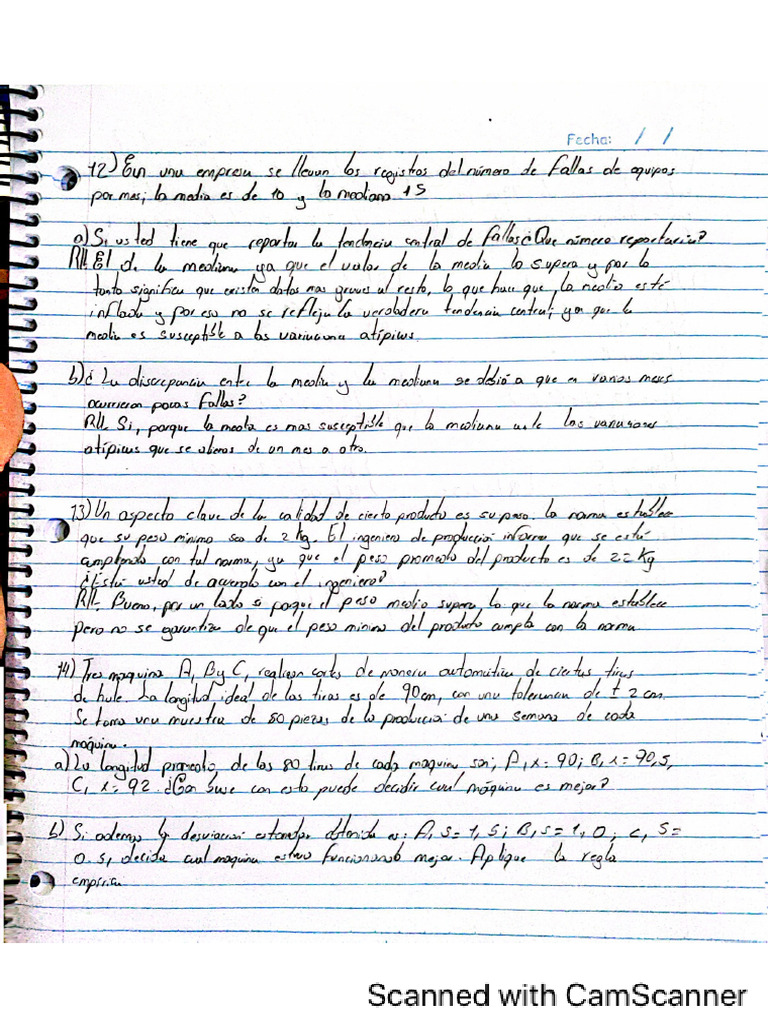 Fecha: / /
12) En una empresa se llevan los registros del número de fallas de equipos
por mes; la media es de 10 y la mediana 15
a) Si usted tiene que reportar la tendencia central de fallas ¿Que número reportaria?
R//. El de la mediana ya que el valor de la media lo supera y por lo
tanto significa que existen datos mas graves al resto, lo que hace que, la media esté
inflada y por eso no se refleja la verdadera tendencia central, ya que la
media es susceptible a las variaciones atípicas.
b) ¿La discrepancia entre la media y la mediana se debió a que en varios meses
ocurrieron pocas fallas?
R//. Si, porque la media es mas susceptible que la mediana ante las variaciones
atípicas que se observa de un mes a otro.
13) Un aspecto clave de la calidad de cierto producto es su peso. la norma establece
que su peso mínimo sea de 2 kg. El ingeniero de producción informa que se está
cumpliendo con tal norma, ya que el peso promedio del producto es de kg
¿Está usted de acuerdo con el ingeniero?
R//- Bueno, por un lado si porque el peso medio supera lo que la norma establece
pero no se garantiza de que el peso minimo del producto cumpla con la norma
14) Tres maquina A, B y C, realizan cortes de manera automática de ciertas tiras
de hule. La longitud ideal de las tiras es de 90 cm, con una tolerancia de ± 2 cm.
Se toma una muestra de 80 piezas de la producción de una semana de cada
máquina.
a) La longitud promedio de las 80 tiras de cada maquina son; A, x = 90; B, x = 90,5,
C, x = 92. ¿Con base con esto puede decidir cual máquina es mejor?
b) Si ademas la desviación estandar obtenida es: A, s = 1,5; B, s = 1,0; C, s =
0.5, decida cual maquina estuvo funcionando mejor. Aplique la regla
empírica.
Scanned with CamScanner